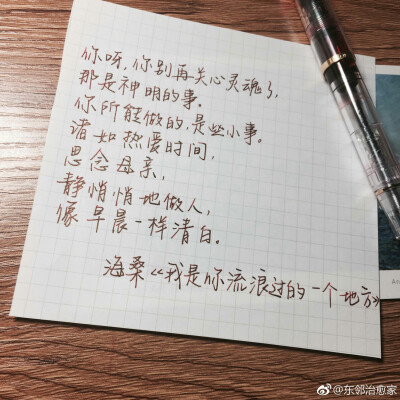 你呀,你别再关心灵魂了,
那是神明的事。
你所能做的,是些小事。
诸如热爱时间,
思念母亲,
静悄悄地做人,
像早晨一样清白。
海桑《我是你流浪过的一个地方》
@东邻治愈家